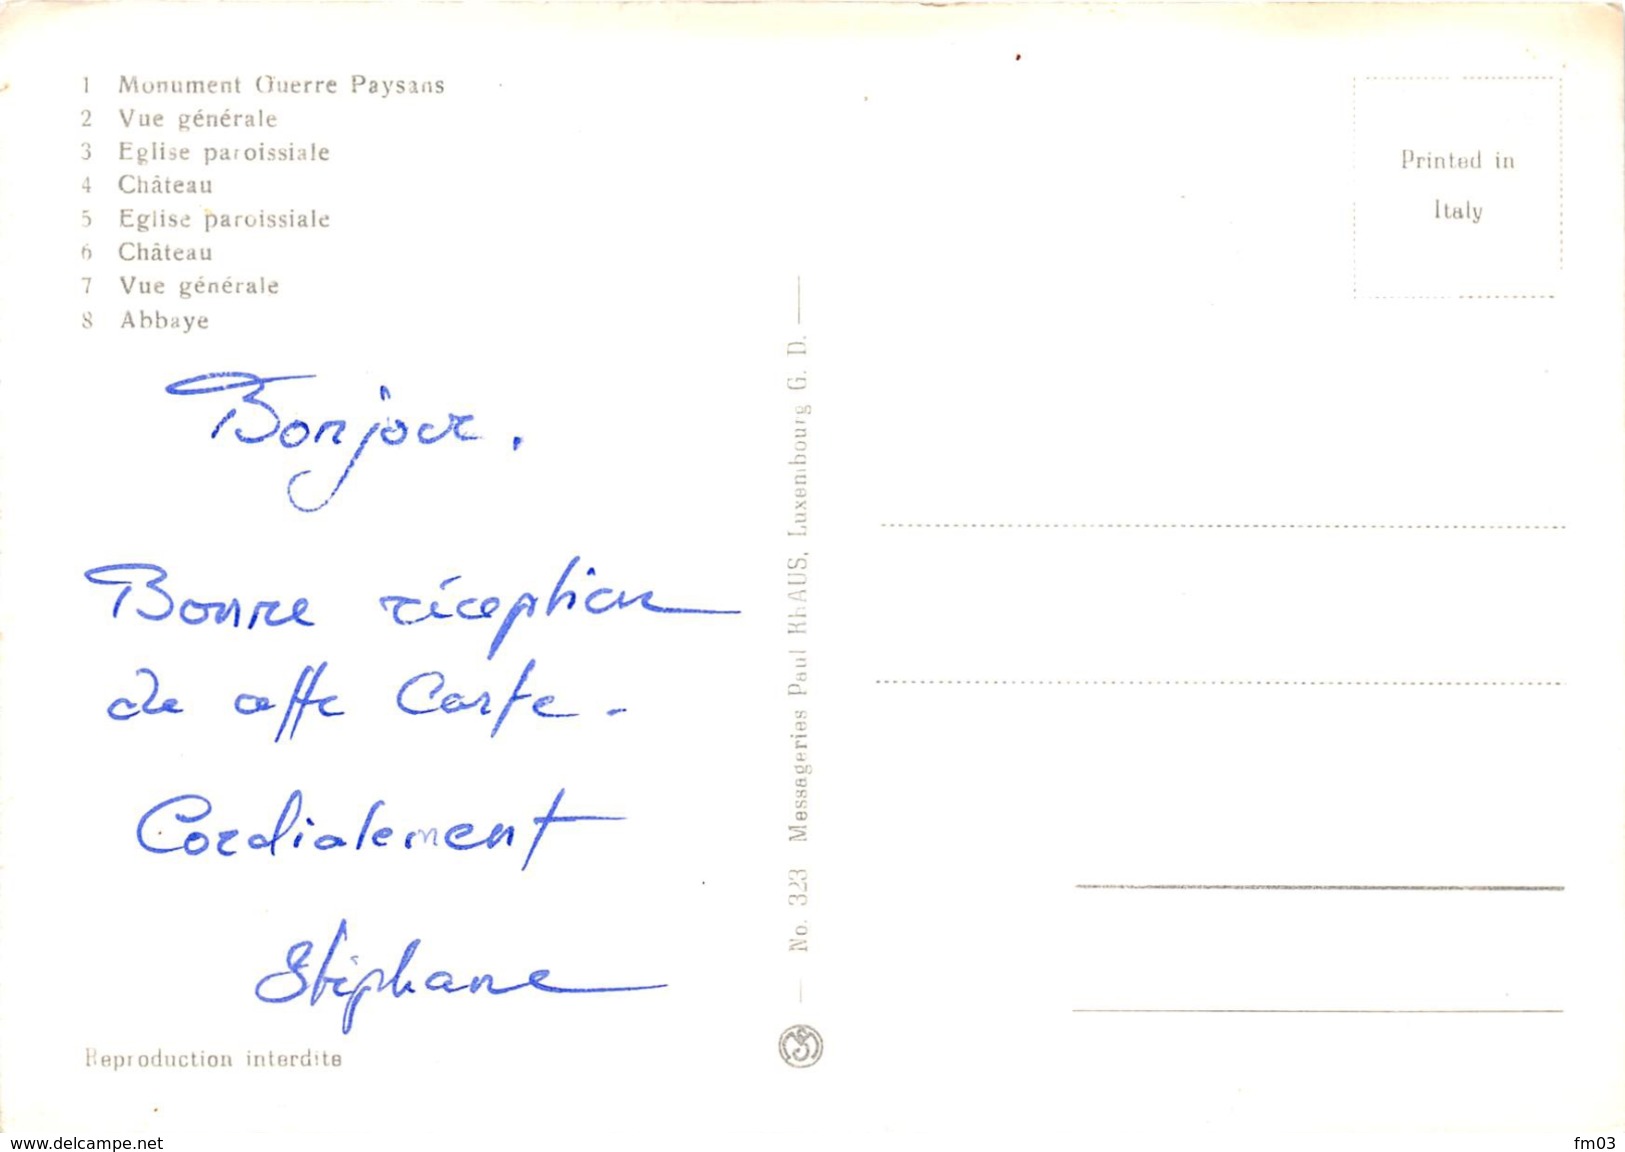 1 Monument Guerre Paysans
2 Vue générale
3 Eglise paroissiale
4 Château
5 Eglise paroissiale
6 Château
7 Vue générale
8 Abbaye
Bonjour.
Bonne réception
de cette Carte.
Cordialement
Stéphane
Reproduction interdite
No. 323 Messageries Paul KRAUS, Luxembourg G. D.
Printed in
Italy
www.delcampe.net
fm03